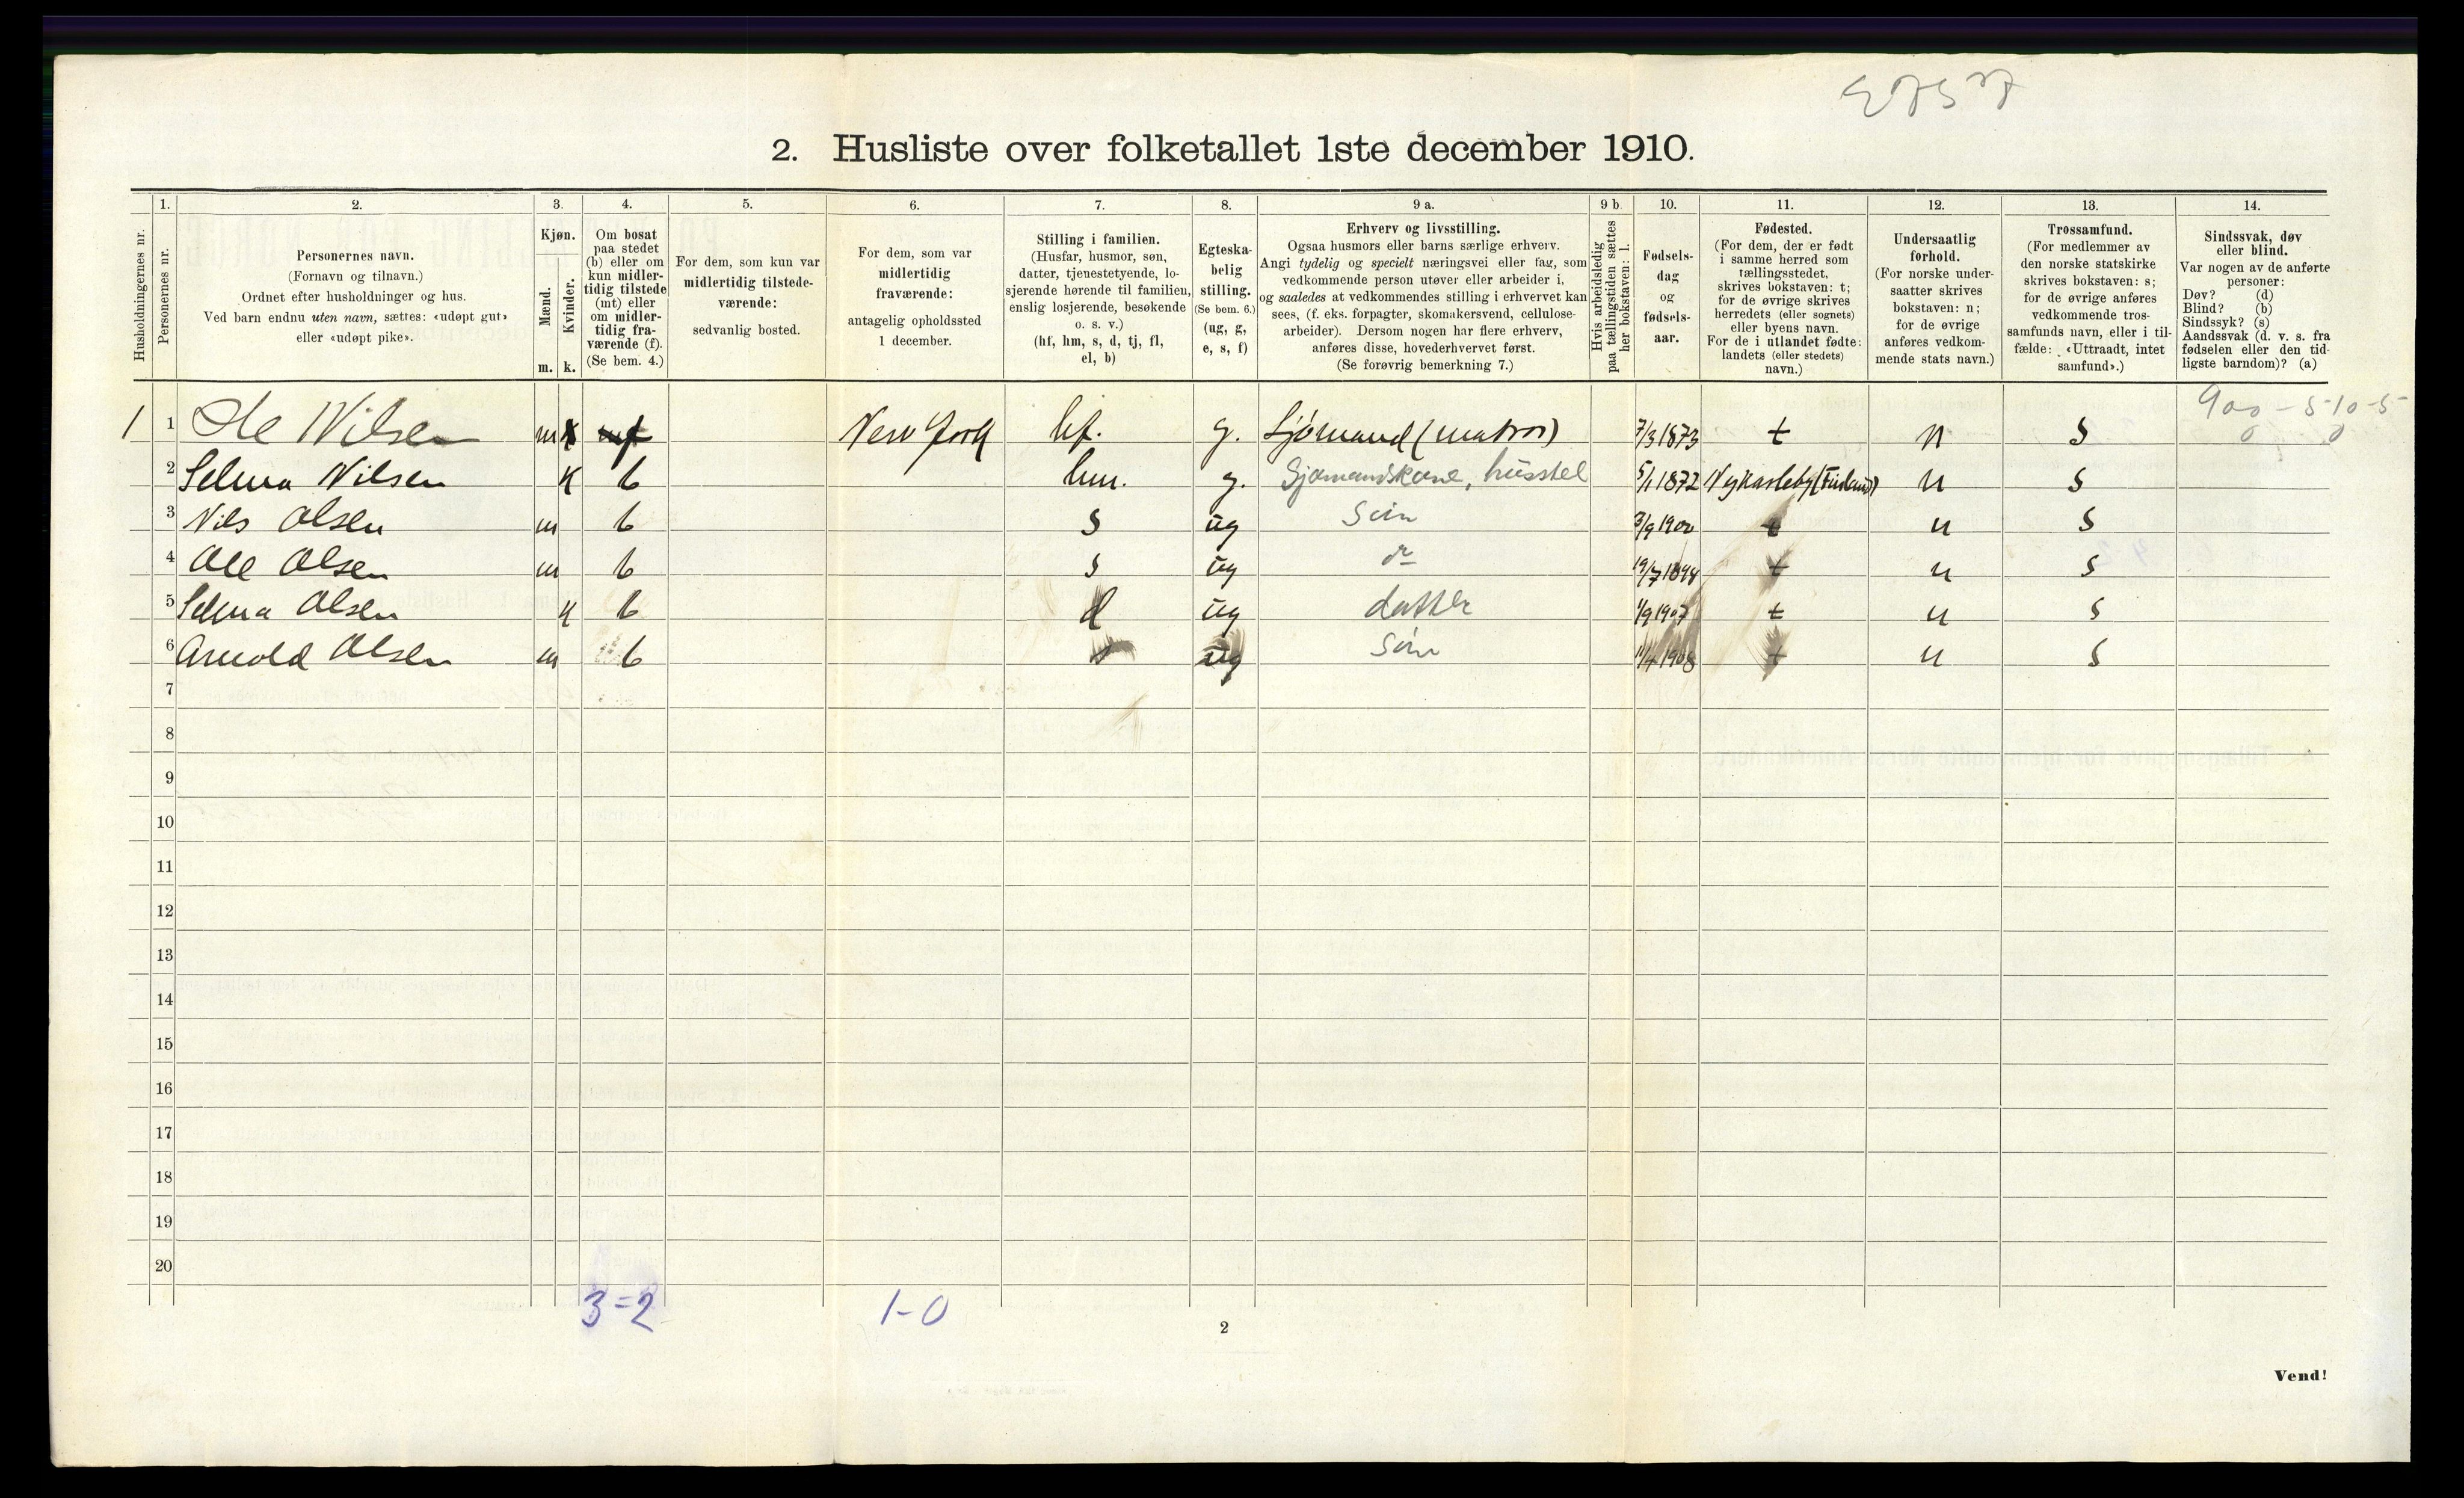 2. Husliste over folketallet 1ste december 1910.
Husholdningernes nr.
1.
Personernes nr.
2.
Personernes navn.
(Fornavn og tilnavn.)
Ordnet efter husholdninger og hus.
Ved barn endnu uten navn, sættes: «udøpt gut»
eller «udøpt pike».
3.
Kjøn.
Mænd.
Kvinder.
m. k.
4.
Om bosat
paa stedet
(b) eller om
kun midler-
tidig tilstede
(mt) eller
om midler-
tidig fra-
værende (f).
(Se bem. 4.)
5.
For dem, som kun var
midlertidig tilstede-
værende:
sedvanlig bosted.
6.
For dem, som var
midlertidig
fraværende:
antagelig opholdssted
1 december.
7.
Stilling i familien.
(Husfar, husmor, søn,
datter, tjenestetyende, lo-
sjerende hørende til familien,
enslig losjerende, besøkende
o. s. v.)
(hf, hm, s, d, tj, fl,
el, b)
8.
Egteska-
belig
stilling.
(Se bem. 6.)
(ug, g,
e, s, f)
9 a.
Erhverv og livsstilling.
Ogsaa husmors eller barns særlige erhverv.
Angi tydelig og specielt næringsvei eller fag, som
vedkommende person utøver eller arbeider i,
og saaledes at vedkommendes stilling i erhvervet kan
sees, (f. eks. forpagter, skomakersvend, cellulose-
arbeider). Dersom nogen har flere erhverv,
anføres disse, hovederhvervet først.
(Se forøvrig bemerkning 7.)
9 b.
Hvis arbeidsledig
paa tællingstiden sættes
her bokstaven: l.
10.
Fødsels-
dag
og
fødsels-
aar.
11.
Fødested.
(For dem, der er født
i samme herred som
tællingsstedet,
skrives bokstaven: t;
for de øvrige skrives
herredets (eller sognets)
eller byens navn.
For de i utlandet fødte:
landets (eller stedets)
navn.)
12.
Undersaatlig
forhold.
(For norske under-
saatter skrives
bokstaven: n;
for de øvrige
anføres vedkom-
mende stats navn.)
13.
Trossamfund.
(For medlemmer av
den norske statskirke
skrives bokstaven: s;
for de øvrige anføres
vedkommende tros-
samfunds navn, eller i til-
fælde: «Uttraadt, intet
samfund».)
14.
Sindssvak, døv
eller blind.
Var nogen av de anførte
personer:
Døv? (d)
Blind? (b)
Sindssyk? (s)
Aandssvak (d. v. s. fra
fødselen eller den tid-
ligste barndom)? (a)
900 - 5-10-5
0 0
1 1 Ole Nilsen m f New York hf. g. Sjømand (matros) 7/3 1873 t n s
2 Selma Nilsen k b hm. g. Sjømandskone, husstel 5/1 1872 Nykarleby (Finland) n s
3 Nils Olsen m b s ug Søn 3/9 1900 t n s
4 Ole Olsen m b s ug do 19/7 t n s
5 Selma Olsen k b d ug datter 1/9 1907 t n s
6 Arnold Olsen m b s ug Søn 11/4 1908 t n s
7
8
9
10
11
12
13
14
15
16
17
18
19
20
3=2 1-0
2
Vend!